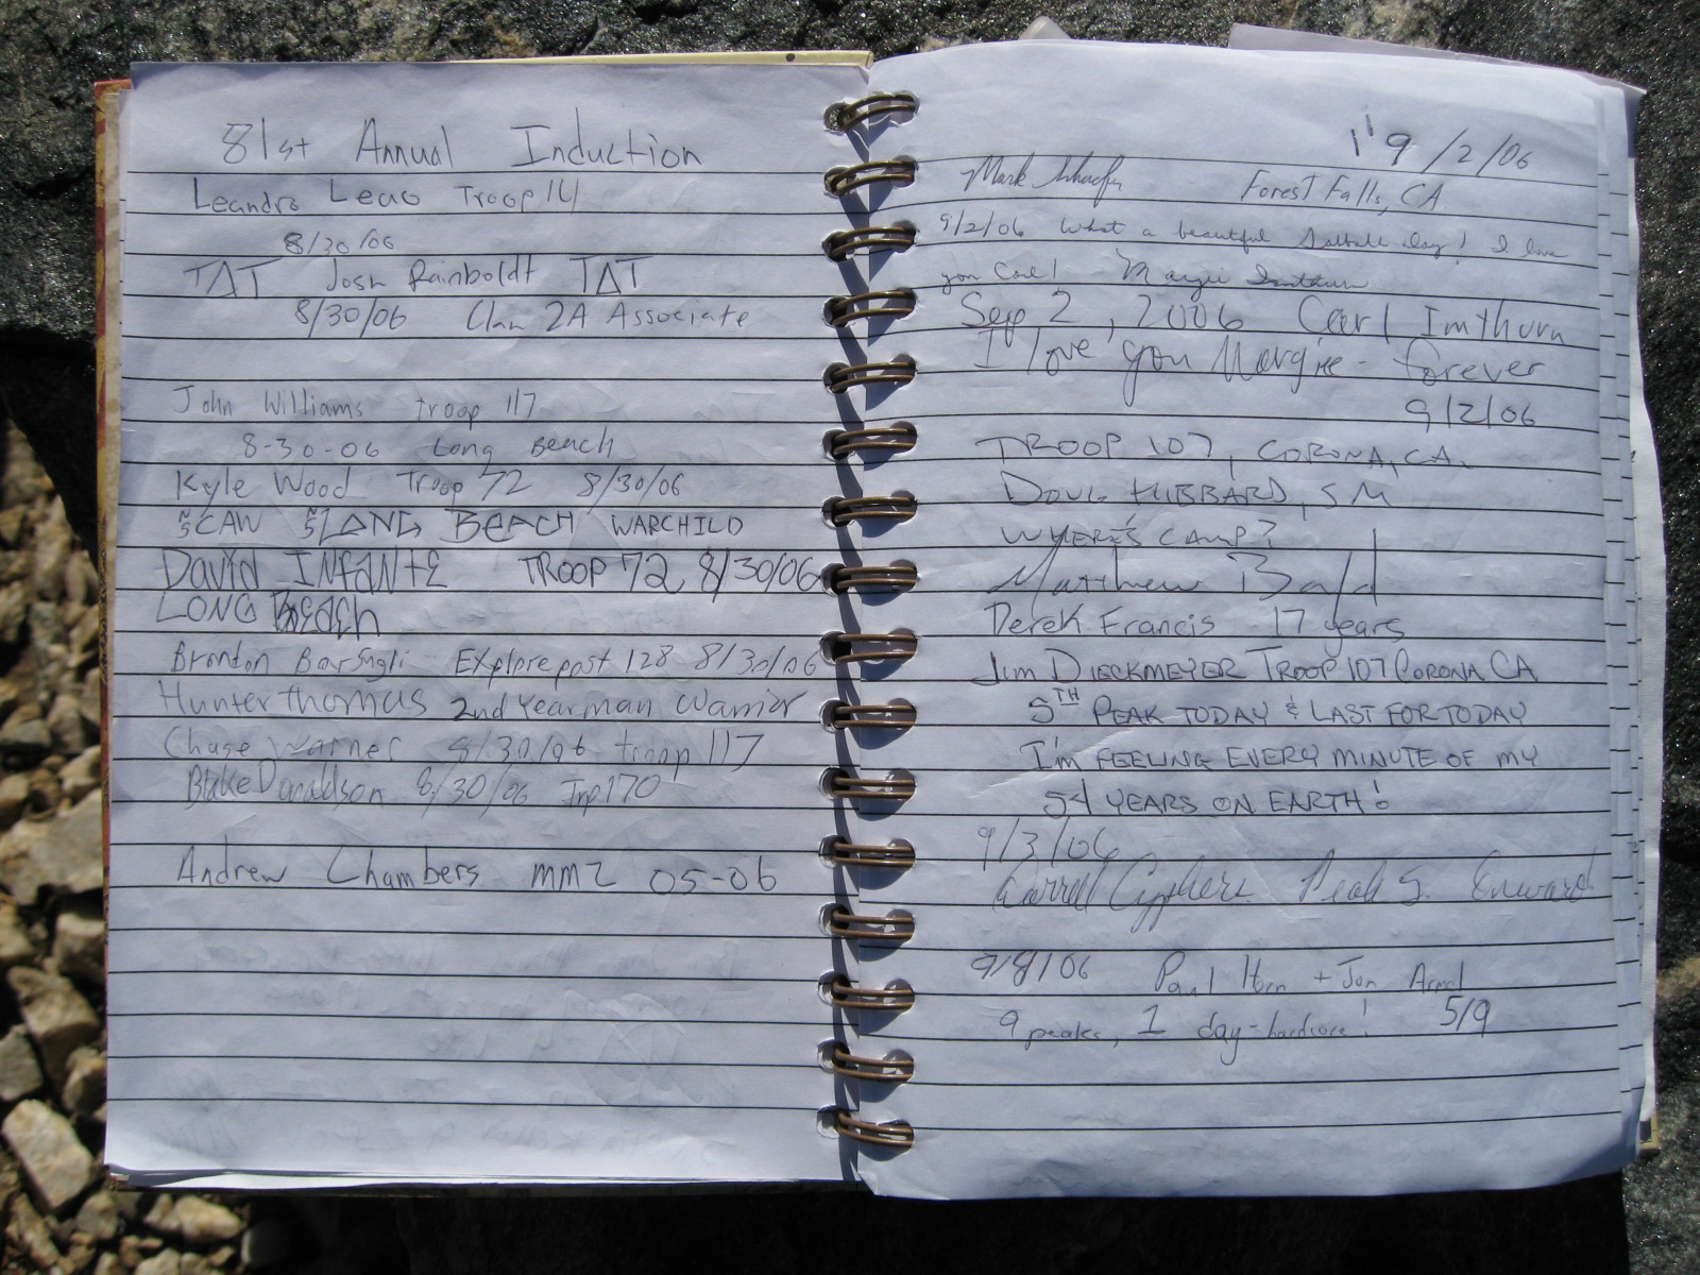 81st Annual Induction
Leandro Leao Troop 14
8/30/06
TAT Josh Rainboldt TAT
8/30/06 Clan 2A Associate
John Williams troop 117
8-30-06 Long Beach
Kyle Wood Troop 72 8/30/06
LONG BEACH WARCHILD
David INfaNtE TROOP 72 8/30/06
LONG BEaCh
Brandon Barsugli Explorepost 128 8/30/06
Hunter thomas 2nd Year man Warrior
Chase Warner 8/30/06 troop 117
Blake Donaldson 8/30/06 Trp 170
Andrew Chambers mm2 05-06
9/2/06
Mark Forest Falls, CA
9/2/06 What a beautiful day! I love
you Carl Margie
Sep 2, 2006 Carl Imthurn
I love you Margie - forever
9/2/06
TROOP 107, CORONA, CA.
DOUG HUBBARD, SM
WHERE'S CAMP?
Matthew Bald
Derek Francis 17 years
Jim DIECKMEYER TROOP 107 CORONA CA
5TH PEAK TODAY & LAST FOR TODAY
I'M FEELING EVERY MINUTE OF MY
54 YEARS ON EARTH!
9/3/06
Darrell Cyphers Peak 5. Onward
9/8/06 Paul Horn + Jon
9 peaks, 1 day-hardcore! 5/9